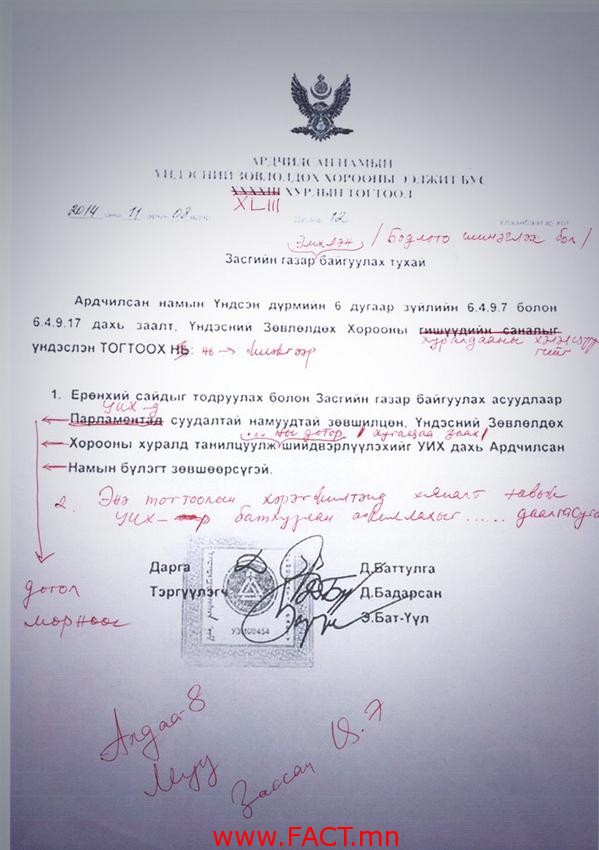 АРДЧИЛСАН НАМЫН
ҮНДЭСНИЙ ЗӨВЛӨЛДӨХ ХОРООНЫ ЭЭЛЖИТ БУС
XXXXIII ХУРЛЫН ТОГТООЛ
XLIII
2014 оны 11 сарын 08 өдөр 12 Улаанбаатар хот
Эмхлэн / Бодлого шинэчлэх бол /
Засгийн газар байгуулах тухай
Ардчилсан намын Үндсэн дүрмийн 6 дугаар зүйлийн 6.4.9.7 болон
6.4.9.17 дахь заалт, Үндэсний Зөвлөлдөх Хорооны гишүүдийн саналыг
хуралдааны
үндэслэн ТОГТООХ НЬ: нь → жижгээр
1. Ерөнхий сайдыг тодруулах болон Засгийн газар байгуулах асуудлаар
УИХ-д
Парламентад суудалтай намуудтай зөвшилцөн, Үндэсний Зөвлөлдөх
... ны дотор / хугацаа заах /
Хорооны хуралд танилцуулж шийдвэрлүүлэхийг УИХ дахь Ардчилсан
Намын бүлэгт зөвшөөрсүгэй.
2. Энэ тогтоолын хэрэгжилтэнд хяналт тавьж
УИХ- ажиллахыг ...... даалгасугай
Дарга Д.Баттулга
Тэргүүлэгч Д.Бадарсан
Э.Бат-Үүл
УЗ 00454
догол
мөрнөөс
Алдаа-8
Муу
Зассан
www.FACT.mn